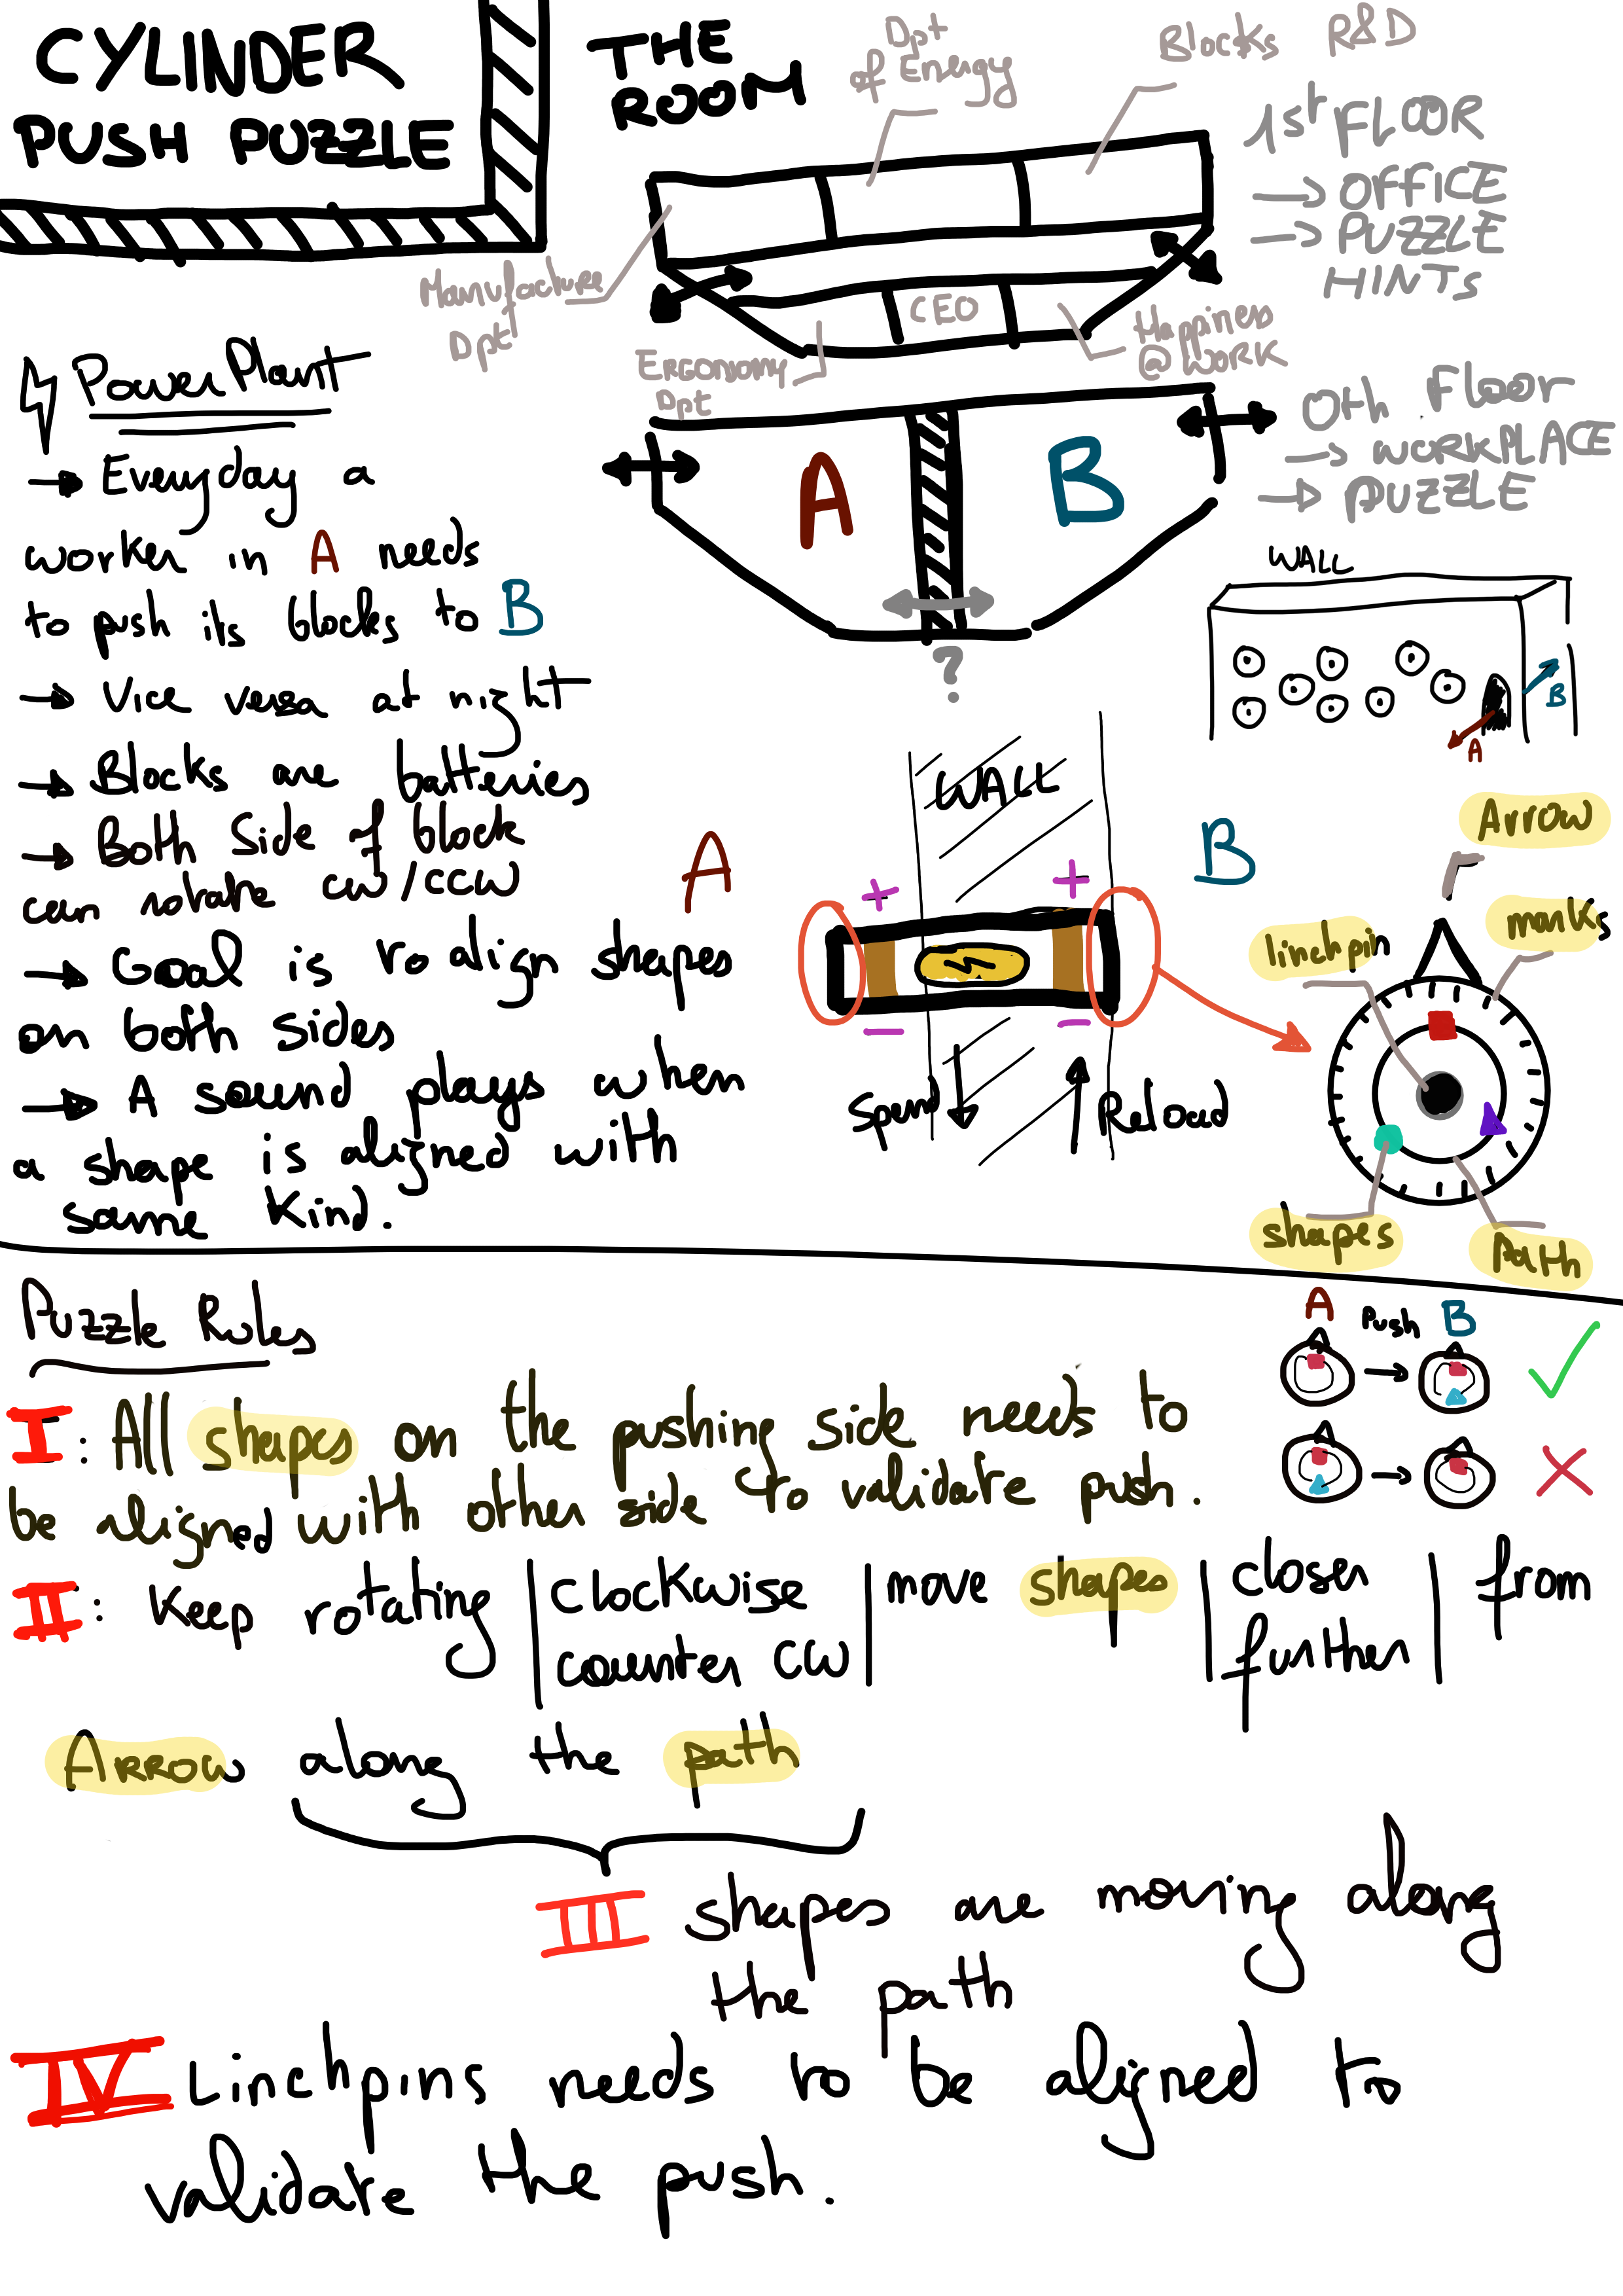 CYLINDER
PUSH PUZZLE
THE
ROOM
Dpt
of Energy
Blocks R&D
Manufacture
Dpt
Ergonomy
Dpt
CEO
Happiness
@ WORK
1st FLOOR
→ OFFICE
→ PUZZLE
HINTs
A
B
?
0th Floor
→ WORKPLACE
→ PUZZLE
WALL
A
B
Power Plant
→ Everyday a
worker in A needs
to push its blocks to B
→ Vice versa at night
→ Blocks are batteries
→ Both Side of block
can rotate cw/ccw
→ Goal is to align shapes
on both sides
→ A sound plays when
a shape is aligned with
same kind.
A
WALL
B
+
+
-
-
Spend
Reload
Arrow
marks
linchpin
shapes
Path
Puzzle Rules
A Push B
I : All shapes on the pushing side needs to
be aligned with other side to validate push.
II : Keep rotating | clockwise | move shapes | closer | from
counter cw | further
Arrow along the path
III shapes are moving along
the path
IV Linchpins needs to be aligned to
validate the push.